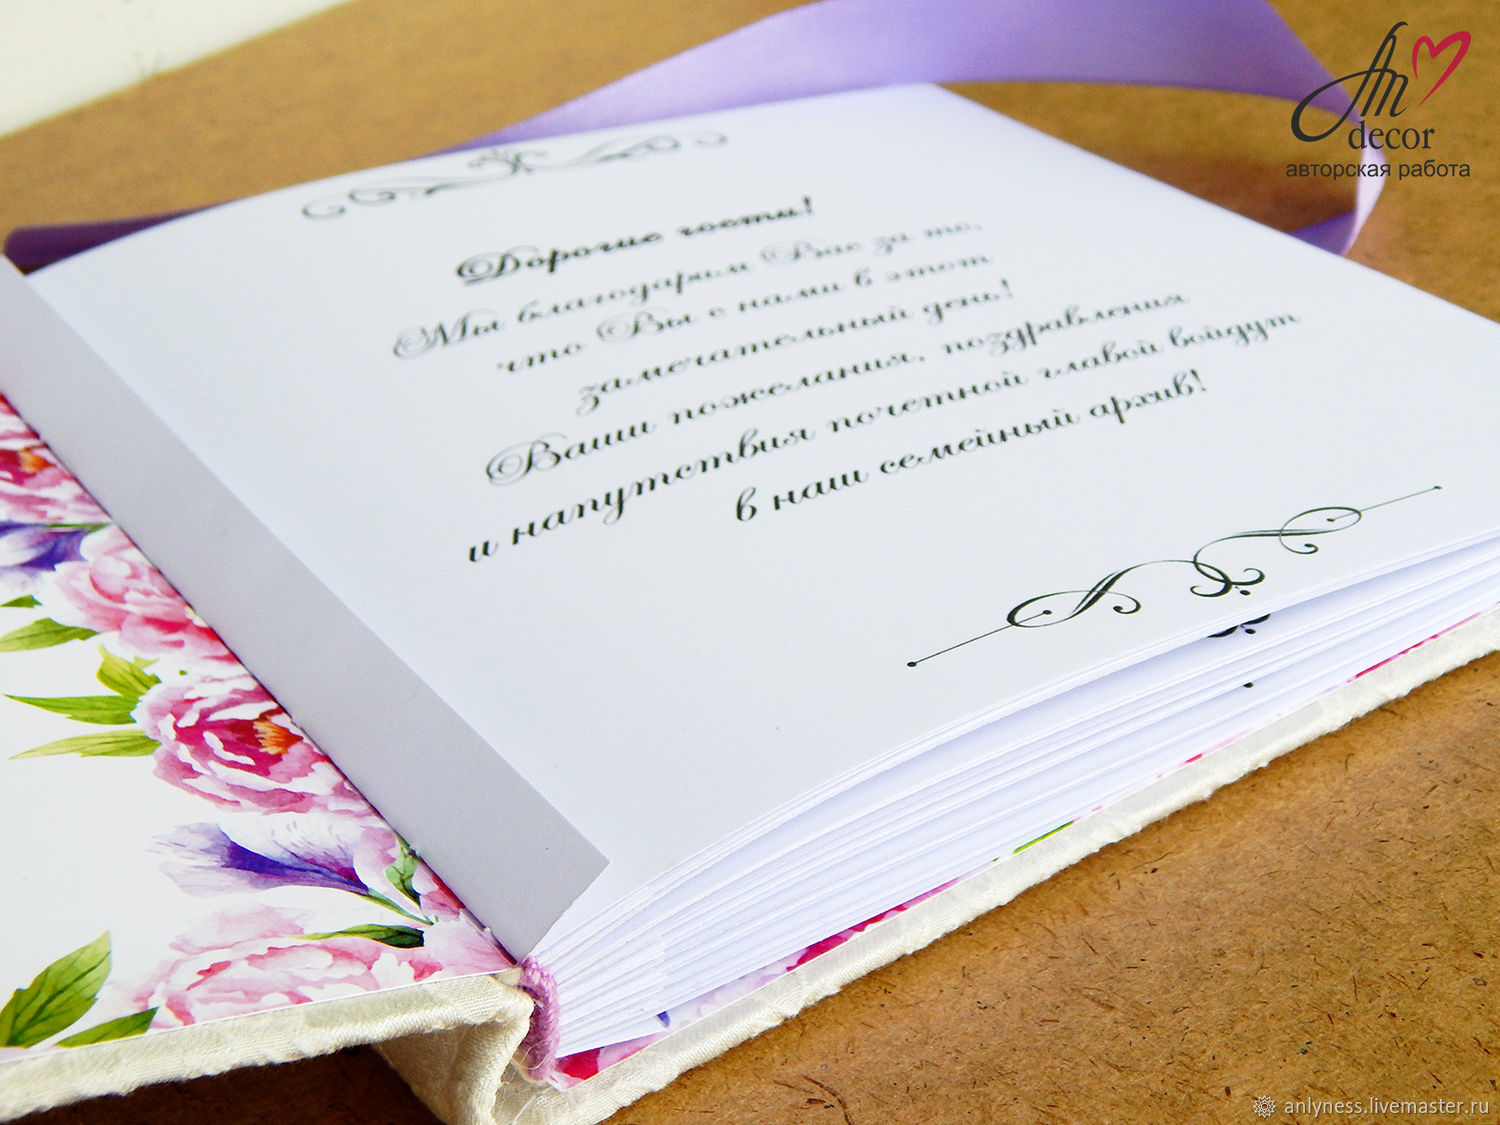 Дорогие гости!
Мы благодарим Вас за то,
что Вы с нами в этот
замечательный день!
Ваши пожелания, поздравления
и напутствия почетной главой войдут
в наш семейный архив!
An
decor
авторская работа
anlyness.livemaster.ru